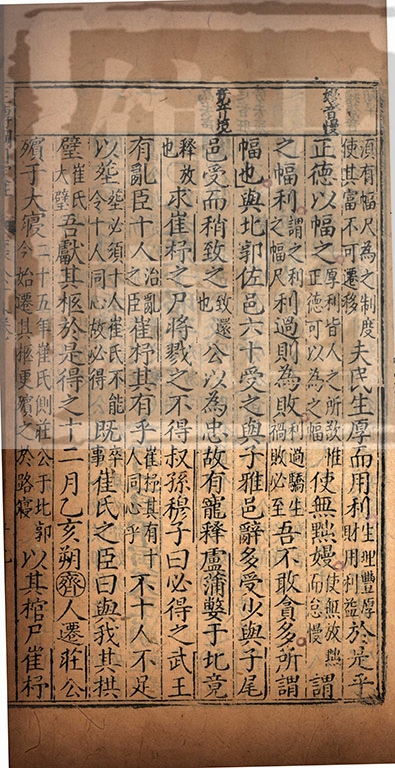 嫚音慢
竟音境
須有幅尺為之制度使其富不可遷移夫民生厚而用利生理豐厚財用利益於是乎
正德以幅之厚利皆人之所欲惟正德可以為之幅使無黜嫚使無放黜而怠慢謂
之幅利謂之利之幅尺利過則為敗利過驕生禍敗必至吾不敢貪多所謂
幅也與北郭佐邑六十受之與子雅邑辭多受少與子尾
邑受而稍致之致還也公以為忠故有寵釋盧蒲嫳于北竟
釋放也求崔杼之尸將戮之不得叔孫穆子曰必得之武王
有亂臣十人治亂之臣崔杼其有乎崔杼其有十人同心乎不十人不足
以葬葬必須十人崔氏不能令十人同心故必得既卒事崔氏之臣曰與我其拱
璧崔氏大璧吾獻其柩於是得之十二月乙亥朔齊人遷莊公
殯于大寢二十五年崔氏側莊公于北郭今始遷其柩更殯之於路寢以其棺尸崔杼